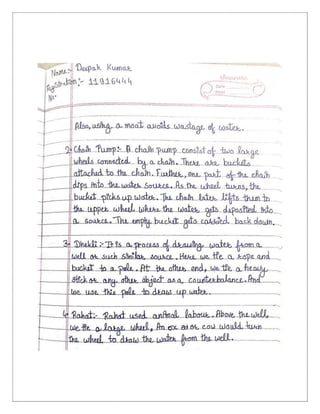 Name:- Deepak Kumar
Registration No:- 11916444
Date
Also, using a moat avoids wastage of water.
2. Chain Pump:- A chain pump consist of two large
wheels connected by a chain. There are buckets
attached to the chain. Further, one part of the chain
dips into the water source. As the wheel turns, the
bucket picks up water. The chain later lifts them to
the upper wheel where the water gets deposited into
a source. The empty bucket gets carried back down.
3. Dhekli :- It is a process of drawing water from a
well or such similar source. Here we tie a rope and
bucket to a pole. At the other end, we tie a heavy
stick or any other object as a counterbalance. And
we use this pole to draw up water.
4. Rahat:- Rahat used animal labour. Above the well,
we tie a large wheel. An ox or or cow would turn
the wheel to draw the water from the well.